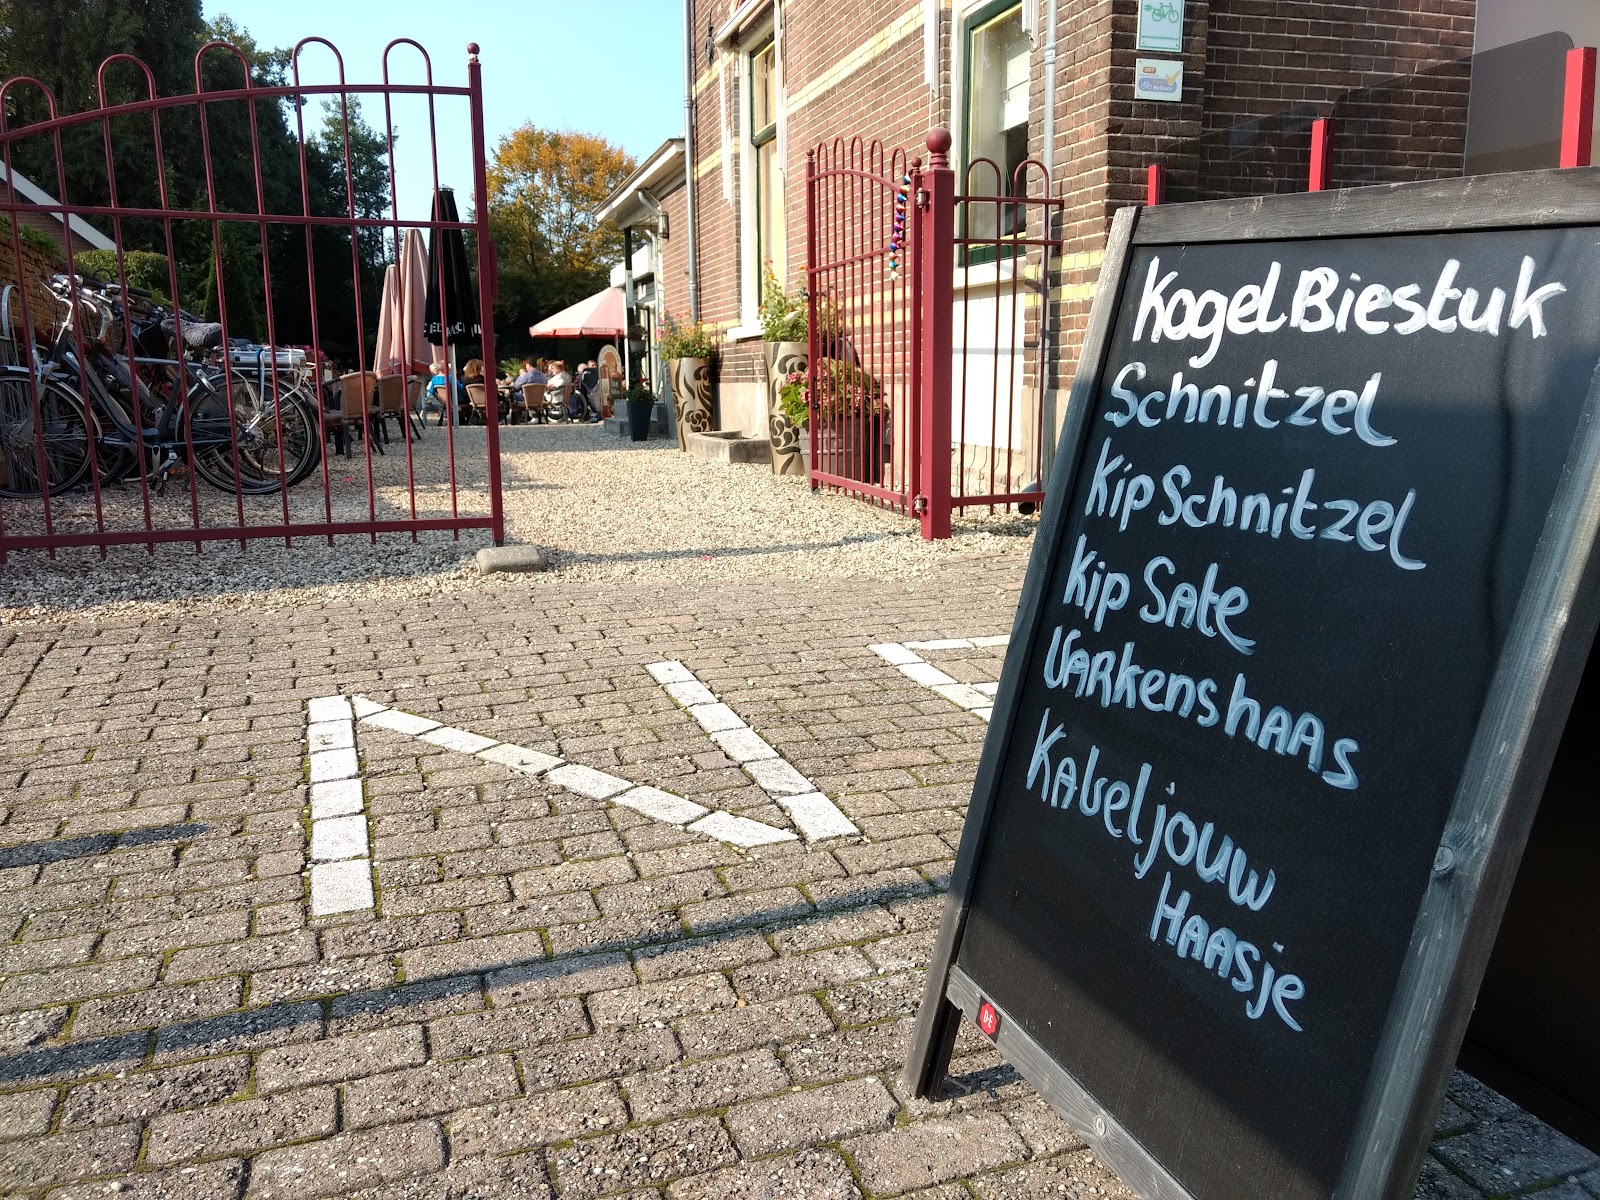 KogelBiestuk
Schnitzel
Kip Schnitzel
Kip Sate
Varkenshaas
Kabeljouw
Haasje
D.E
Welkom!